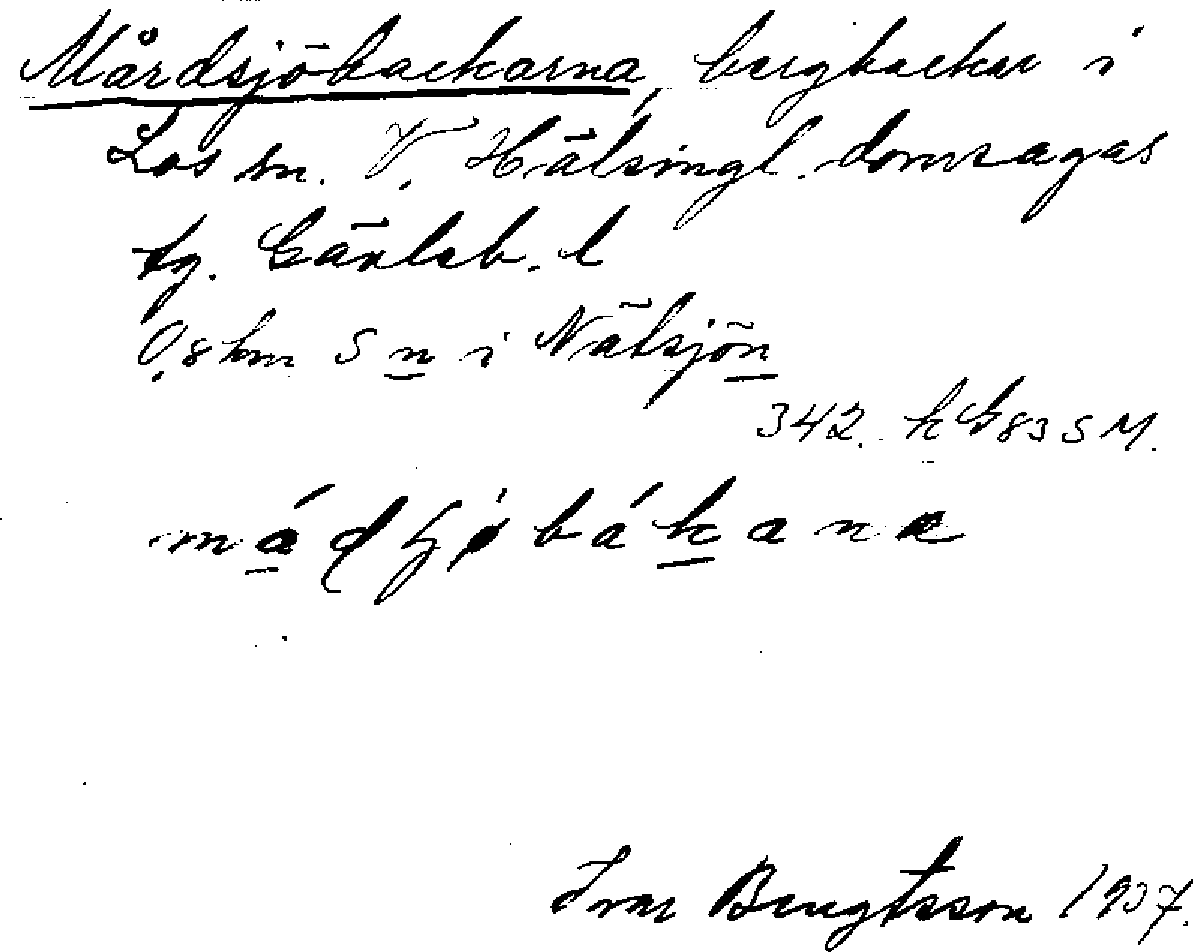 Mårdsjöbackarna, bergbackar i
Los sn. V. Hälsingl. domsagas
tg. Gävleb. l
0,8 km S n i Nätsjön
342. h G 83 S M.
Ivar Bengtsson 1937.